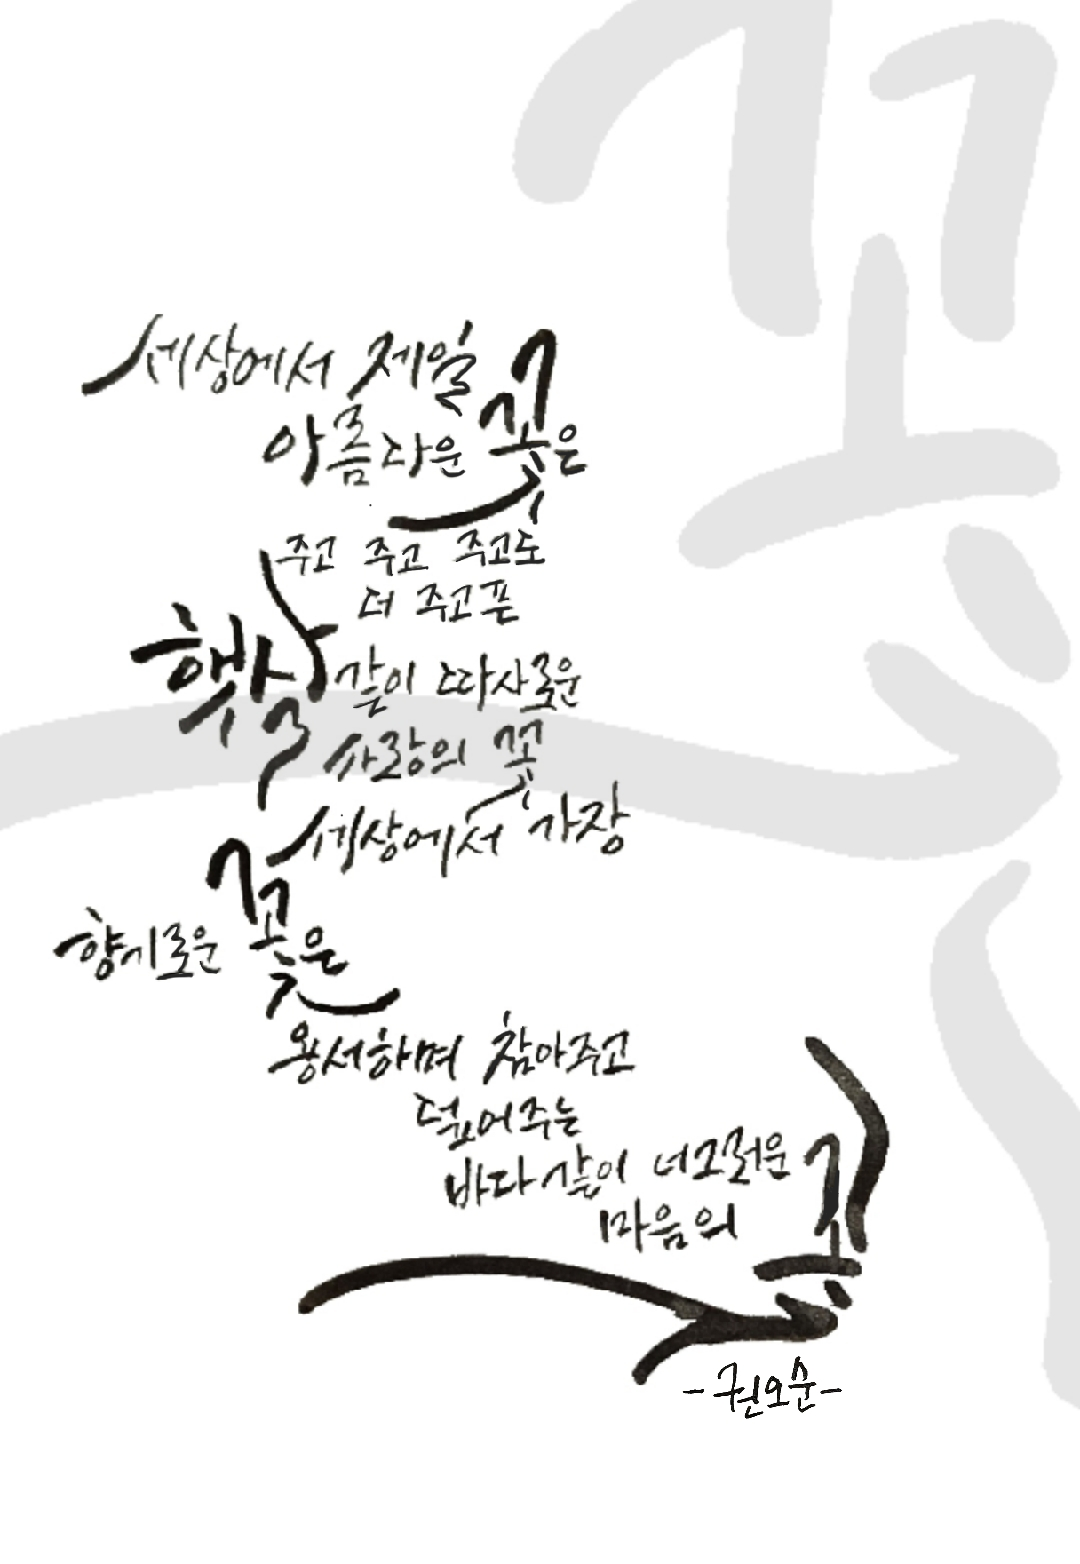 꽃
세상에서 제일
아름다운 꽃은
주고 주고 주고도
더 주고픈
햇살 같이 따사로운
사랑의 꽃
세상에서 가장
향기로운 꽃은
용서하며 참아주고
덮어주는
바다같이 너그러운
마음의 꽃
-권오순-